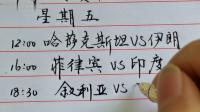 星期五
12:00 哈萨克斯坦VS伊朗
16:00 菲律宾 VS 印度
18:30 叙利亚 VS